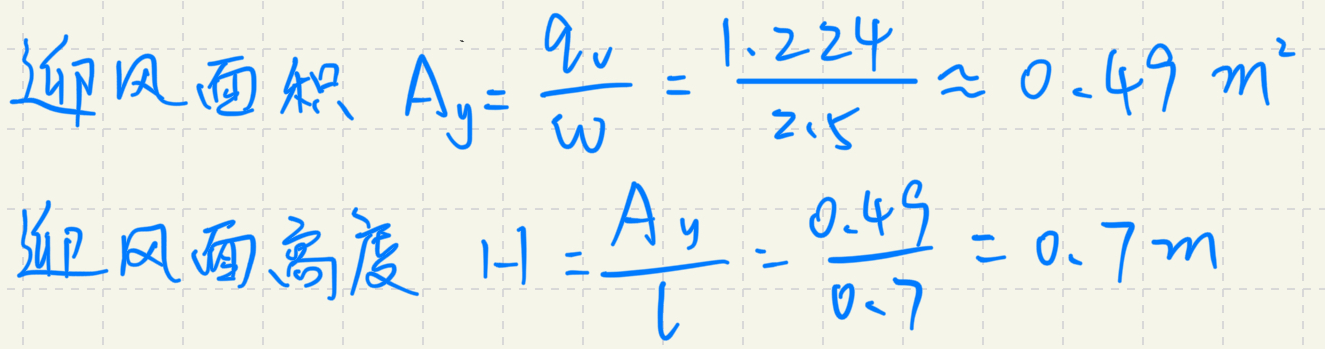 迎风面积 A_y = q_v / w = 1.224 / 2.5 ≈ 0.49 m²
迎风面高度 H = A_y / l = 0.49 / 0.7 = 0.7 m